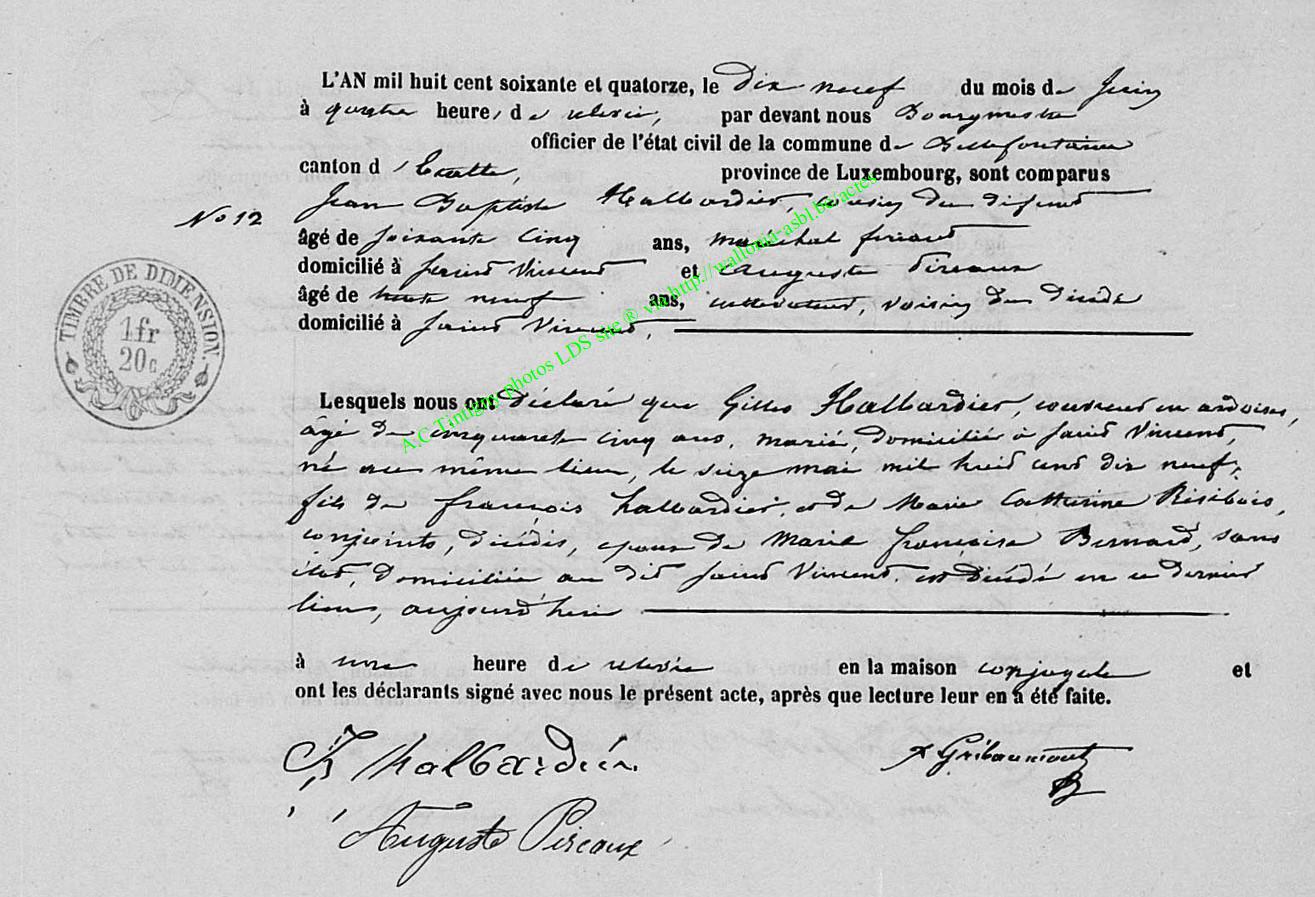 L'AN mil huit cent soixante et quatorze, le dix neuf du mois de Juin
à quatre heures de relevée, par devant nous Bourgmestre
officier de l'état civil de la commune de Bellefontaine
canton d'Etalle, province de Luxembourg, sont comparus
No 12
Jean Baptiste Hallbardier, cousin du défunt
âgé de soixante cinq ans, maréchal ferrant
domicilié à Saint Vincent et Auguste Pireaux
âgé de trente neuf ans, cultivateur, voisin du décédé
domicilié à Saint Vincent,
TIMBRE DE DIMENSION.
1 fr
20 c
Lesquels nous ont déclaré que Gilles Hallbardier, couvreur en ardoises,
agé de cinquante cinq ans, marié, domicilié à Saint Vincent,
né au même lieu, le seize mai mil huit cent dix neuf,
fils de françois hallbardier, et de Marie Catherine Risibois,
conjoints, décédés, époux de Marie françoise Bernard, sans
état, domiciliée au dit Saint Vincent, est décédé en ce dernier
lieu, aujourd'hui
à une heure de relevée en la maison conjugale et
ont les déclarants signé avec nous le présent acte, après que lecture leur en a été faite.
halbardier
A Gribaumont
Auguste Pireaux
A.C Tintigny photos LDS site ® via http://wallonia-asbl.be/actes